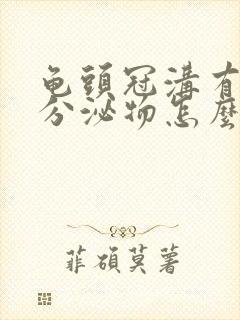 龟頭冠溝有
分泌物怎麼
菲碩莫薯